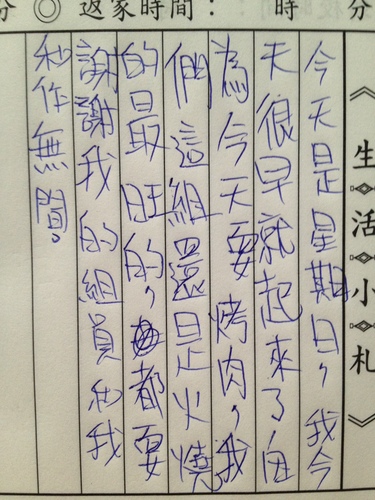 分 ◎ 返家時間： 時 分
《生活小札》
今天是星期日，我今
天很早就起來了，因
為今天要烤肉，我
們這組還是火燒
的最旺的，都要
謝謝我的組員和我
和作無間。